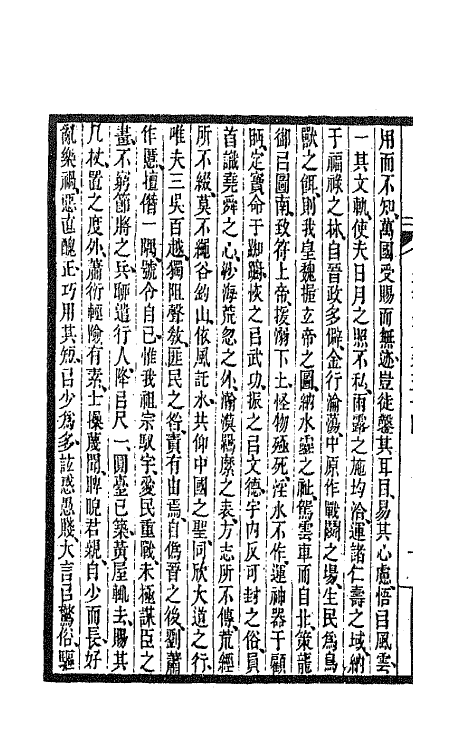 用而不知、萬國受賜而無迹、豈徒鑿其耳目、易其心慮、悟㠯風雲、
一其文軌、使夫日月之照不私、雨露之施均洽、運諸仁壽之域、納
于福祿之林、自晉政多僻、金行淪蕩、中原作戰鬬之場、生民爲鳥
獸之餌、則我皇魏握玄帝之圖、納水靈之祉、駕雲車而自北、策龍
御㠯圖南、致符上帝、援溺下土、怪物殛死、淫水不作、運神器于顧
眄、定寶命于踟躕、恢之㠯武功、振之㠯文德、宇內反可封之俗、員
首識堯舜之心、紗海荒忽之外、瀚漠羈縻之表、方志所不傳、荒經
所不綴、莫不繩谷釣山、依風託水、共仰中國之聖、同欣大道之行、
唯夫三吳百越、獨阻聲敎、匪民之咎、責有由焉、自僞晉之後、劉蕭
作慝、擅僭一隅、號令自己、惟我祖宗馭宇、愛民重戰、未極謀臣之
畫、不窮節將之兵、聊遣行人、降㠯尺一、圓臺已築、黃屋輒去、賜其
几杖、置之度外、蕭衍輕險有素、士操蔑聞、睥睨君親、自少而長、好
亂樂禍、惡直醜正、巧用其短、㠯少爲多、訟惑愚賤、大言㠯驚俗、驅